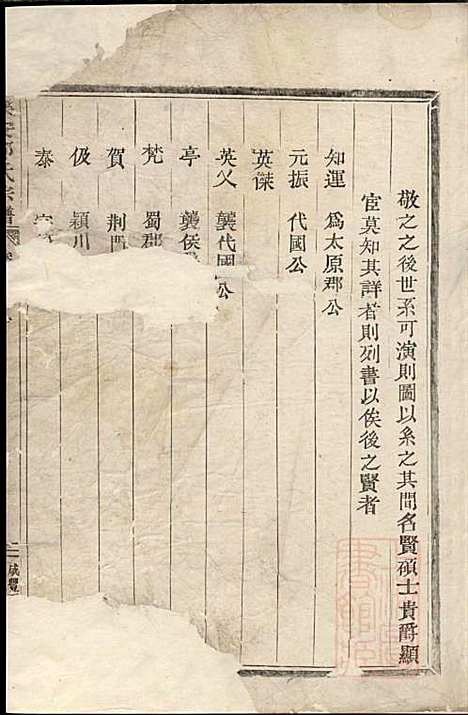 敬之之後世系可演則圖以系之其間名賢碩士貴爵顯
宦莫知其詳者則列書以俟後之賢者
知運 爲太原郡公
元振 代國公
英傑
英乂 襲代國公
亭 襲侯
梵 蜀郡
賀 荆門
伋 潁川
泰
氏宗譜
咸豐